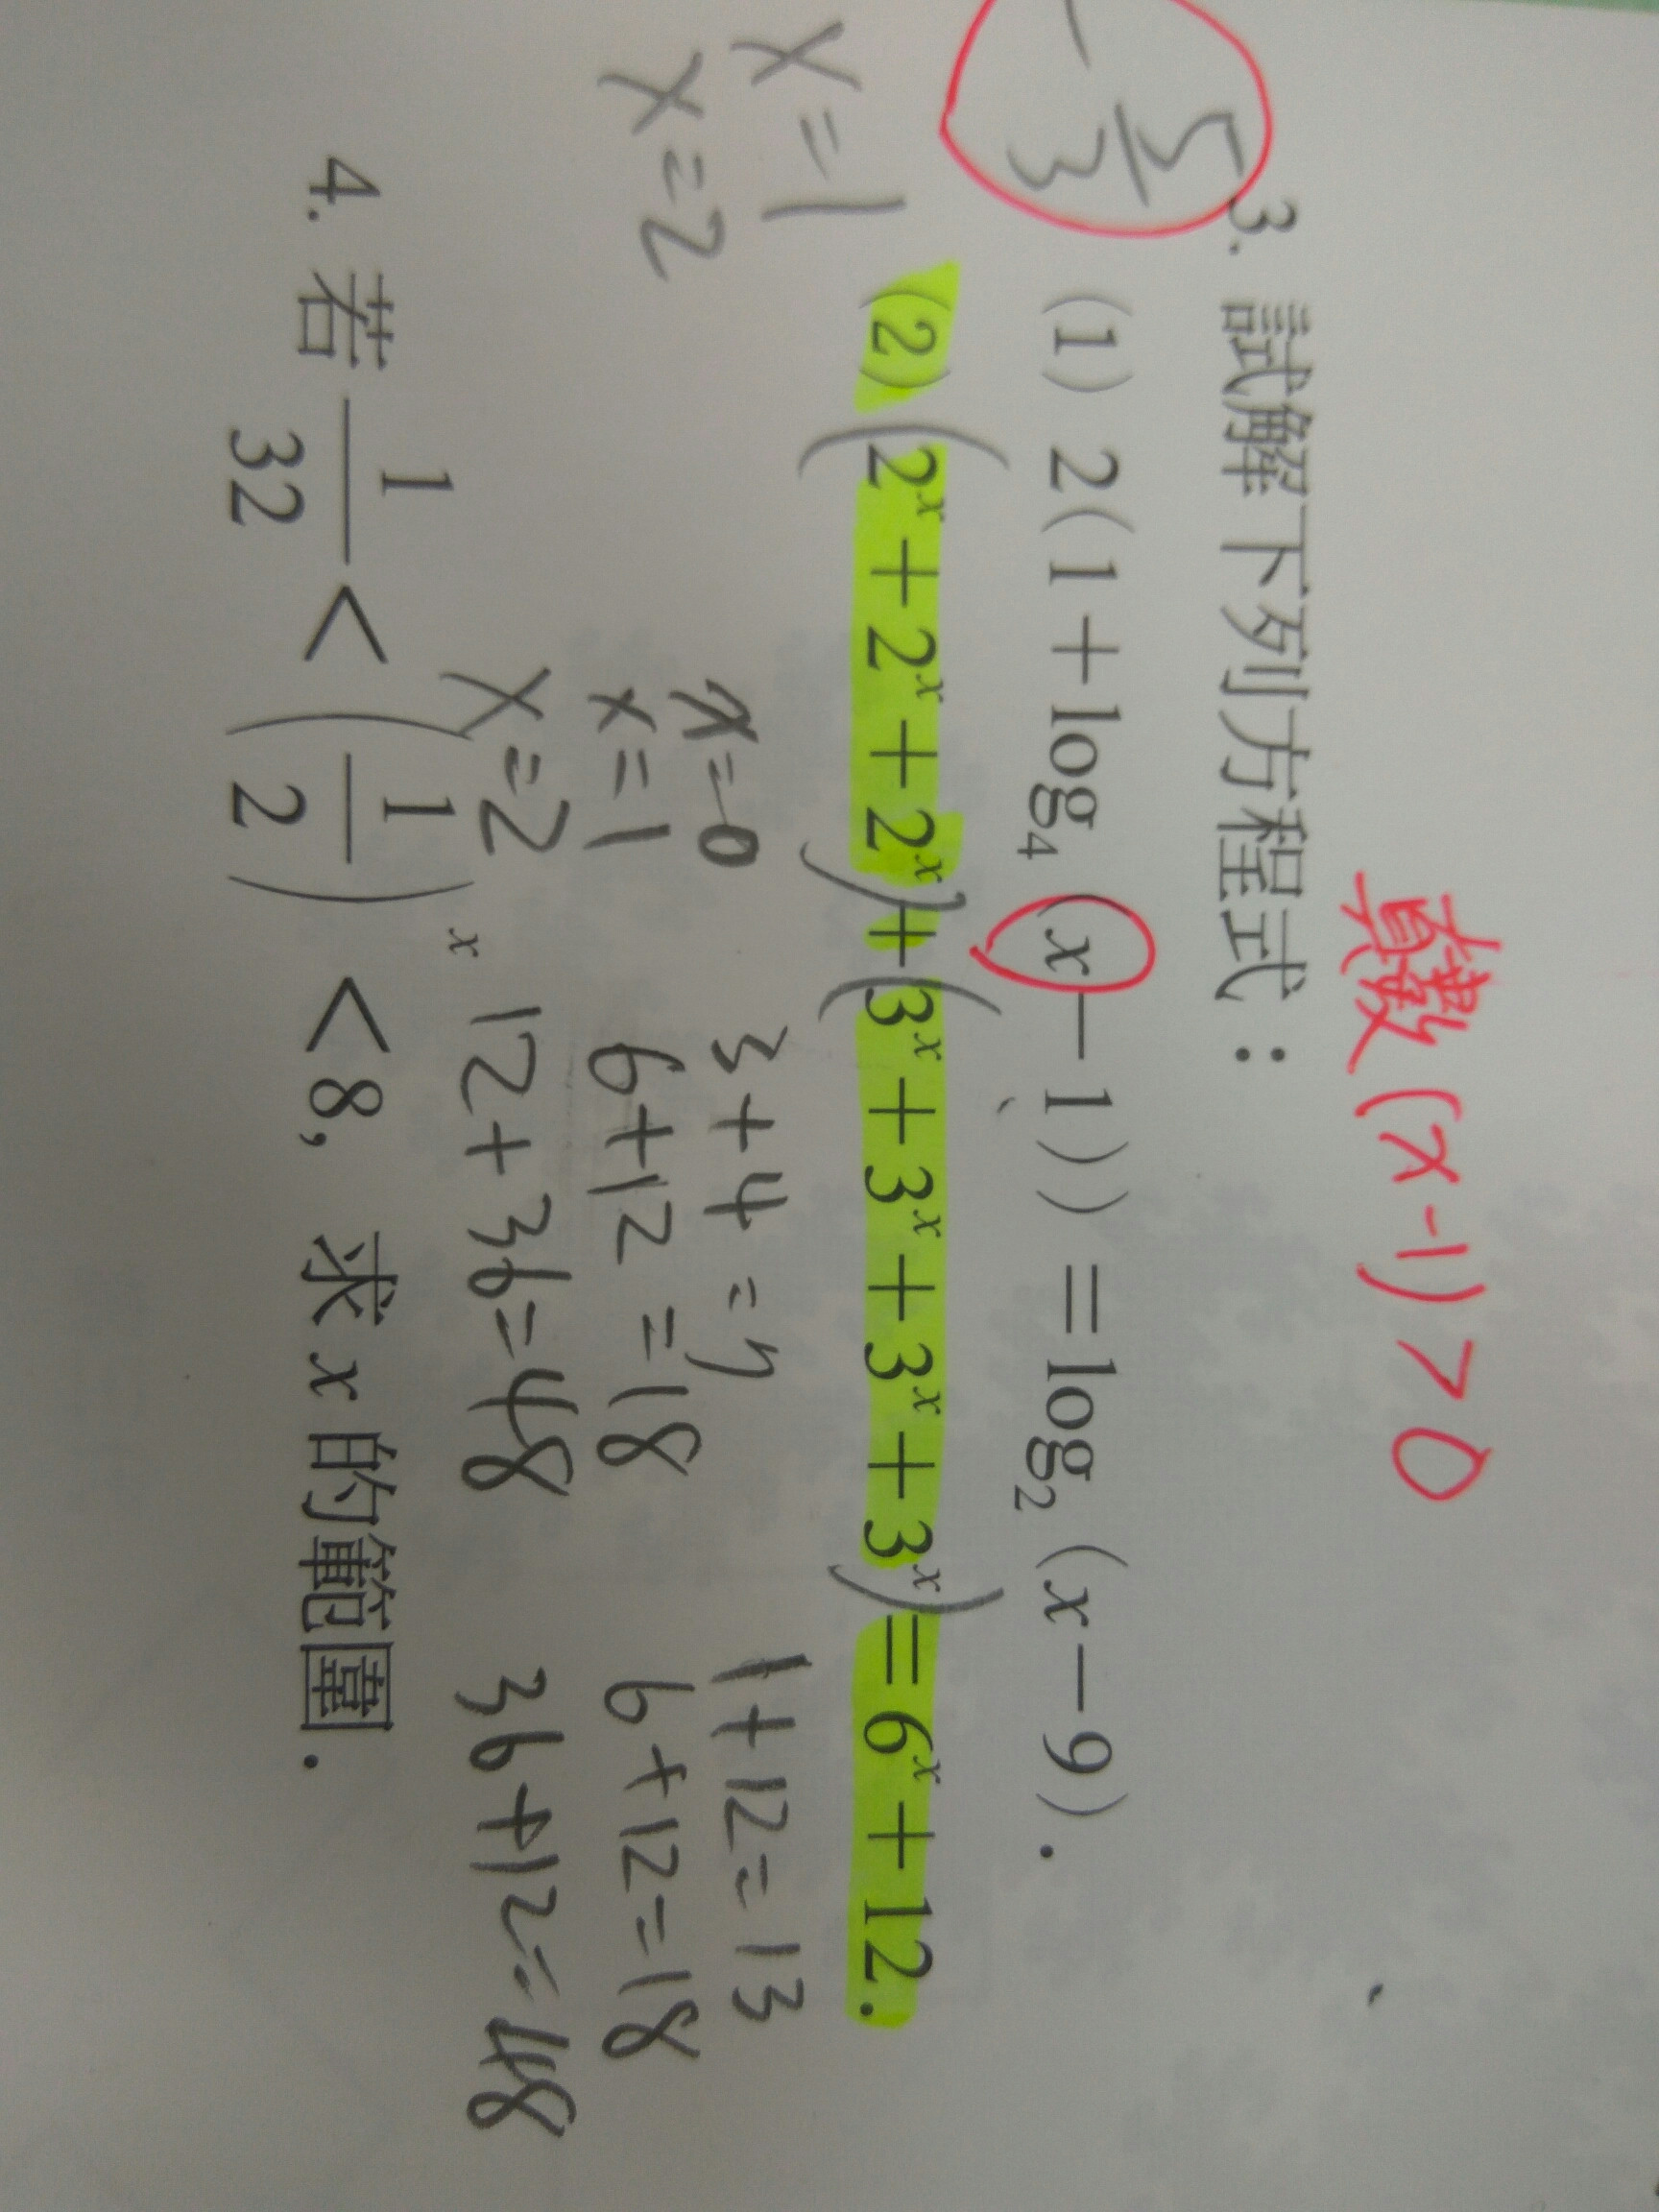 真數 (x-1) > 0
3. 試解下列方程式：
(1) 2(1+log₄(x-1)) = log₂(x-9).
- 5/3
(2) (2ˣ+2ˣ+2ˣ)+(3ˣ+3ˣ+3ˣ+3ˣ)=6ˣ+12.
x=1
x=2
x=0 3+4=7 1+12=13
x=1 6+12=18 6+12=18
x=2 12+36=48 36+12=48
4. 若 1/32 < (1/2)ˣ < 8, 求 x 的範圍.